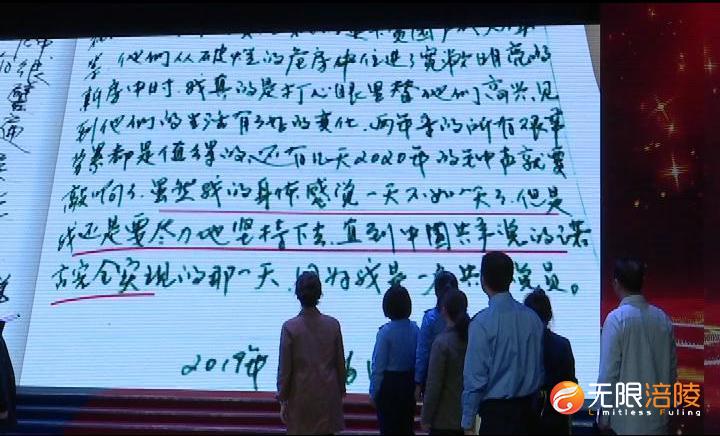 他们从破烂的危房中住进了宽敞明亮的
新房中时，我真的是打心眼里替他们高兴，见
到他们的生活有了好的变化，两年来的所有艰辛
劳累都是值得的。还有几天2020年的钟声就要
敲响了。虽然我的身体感觉一天不如一天了，但是
我还是要尽力地坚持下去，直到中国共产党的诺
言完全实现的那一天，因为我是一名共 党员。
2019年
无限涪陵
Limitless Fuling